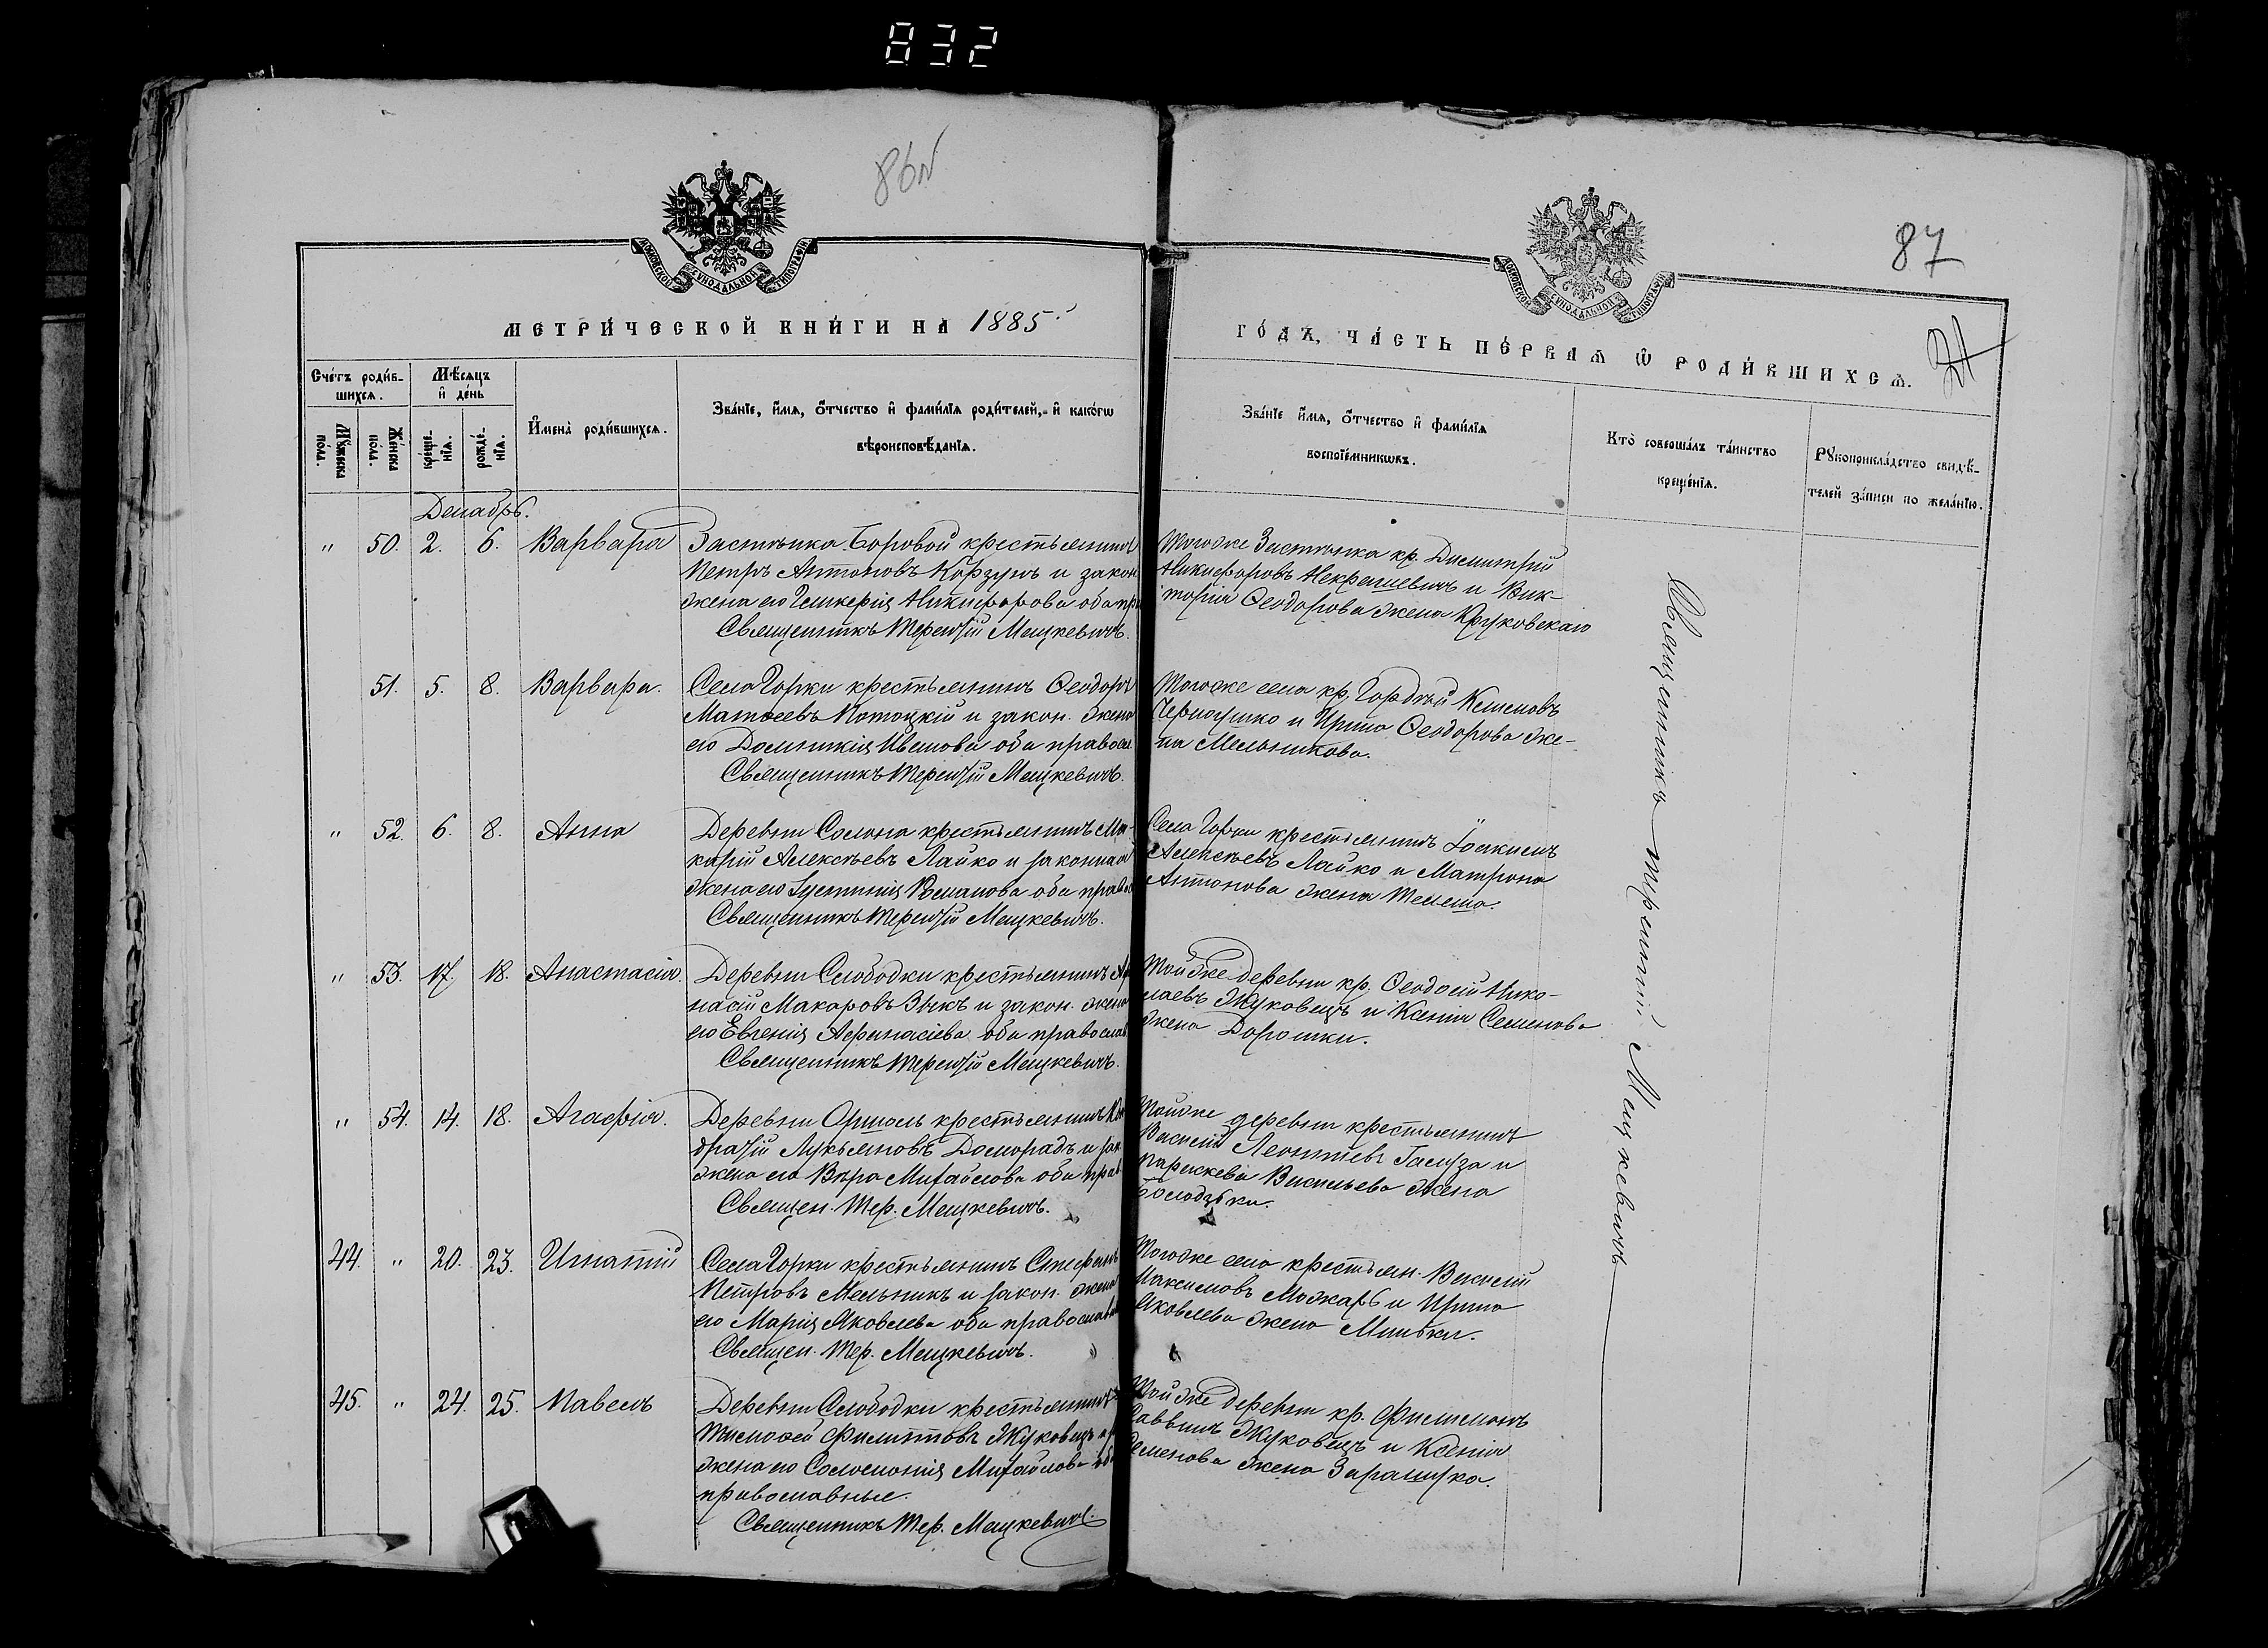 832
86
87
МОСКОВСКОЙ СѴНОДАЛЬНОЙ ТИПОГРАФІИ
МОСКОВСКОЙ СѴНОДАЛЬНОЙ ТИПОГРАФІИ
МЕТРИ́ЧЕСКОЙ КНИ́ГИ НА 1885
ГО́ДЪ, ЧА́СТЬ ПЕ́РВАѦ Ѽ РОДИ́ВШИХСѦ.
Сче́тъ роди́в-
шихсѧ.
Мꙋ́жеска
по́ла.
Же́нска
по́ла.
Мѣ́сѧцъ
и҆ де́нь
креще́-
нїѧ.
рожде́-
нїѧ.
И҆мена̀ роди́вшихсѧ.
Зва́нїе, и҆́мѧ, ѻ҆́тчество и҆ фами́лїѧ роди́телей, и҆ како́гѡ
вѣроисповѣ́данїѧ.
Зва́нїе и҆́мѧ, ѻ҆́тчество и҆ фами́лїѧ
воспрїе́мникѡвъ.
Кто̀ соверша́лъ та́инство
креще́нїѧ.
Рꙋкоприкла́дство свидѣ́-
телей за́писи по жела́нїю.
Декабрь.
" 50. 2. 6. Варвара
Застѣнка Боровой крестьянинъ
Петръ Антоновъ Корзунъ и закон
жена его Гликерія Никифорова оба пр
Священникъ Терентій Мацкевичъ.
Тогоже Застѣнка кр. Димитрій
Никифоровъ Некрашевичъ и Вик-
торія Ѳеодорова жена Круковскаго
51. 5. 8. Варвара.
Села Горки крестьянинъ Ѳеодоръ
Матѳеевъ Потоцкій и закон. жена
его Домникія Иванова оба правосл
Священникъ Терентій Мацкевичъ.
Тогоже села кр. Гордѣй
Чернушко и Ирина Ѳеодорова же-
на Мельникова.
" 52. 6. 8. Анна
Деревни Солона крестьянинъ Ма-
карій Алексѣевъ Лайко и законная
жена его Іустинія Романова оба прав
Священникъ Терентій Мацкевичъ.
Села Горки крестьянинъ Іоакимъ
Алексѣевъ Лайко и Матрона
Антонова жена
" 53. 17. 18. Анастасія.
Деревни Слободки крестьянинъ Аѳа
насій Макаровъ Зыкъ и закон. жена
его Евгенія Аѳанасіева оба православ
Священникъ Терентій Мацкевичъ.
Тойже деревни кр. Ѳеодосій Нико-
лаевъ Жуковецъ и Ксенія Семенова
жена Дорошки.
" 54. 14. 18. Агафія.
Деревни Оршаль крестьянинъ Кон
дратій Лукьяновъ Доморадъ и зак
жена его Вѣра Михайлова оба прав
Священ. Тер. Мацкевичъ.
Тойже деревни крестьянинъ
Василій Леонтіевъ и
Параскева Васильева жена
44. " 20. 23. Игнатій
Села Горки крестьянинъ Стефанъ
Петровъ Мельникъ и закон. жена
его Марія Яковлева оба православн
Священ. Тер. Мацкевичъ.
Тогоже села крестьян. Василій
Максимовъ Можарь и Ирина
Яковлева жена Миньки.
45. " 24. 25. Павелъ
Деревни Слободки крестьянинъ
Тимоѳей Филипповъ Жуковецъ и
жена его Соломонія Михайлова оба
православные.
Священникъ Тер. Мацкевичъ.
Тойже деревни кр. Филимонъ
Саввинъ Жуковецъ и Ксенія
Семенова жена
Священникъ Терентій Мацкевичъ